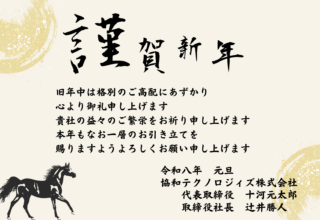 謹賀新年
旧年中は格別のご高配にあずかり
心より御礼申し上げます
貴社の益々のご繁栄をお祈り申し上げます
本年もなお一層のお引き立てを
賜りますようよろしくお願い申し上げます
令和八年 元旦
協和テクノロジィズ株式会社
代表取締役 十河元太郎
取締役社長 辻井勝人